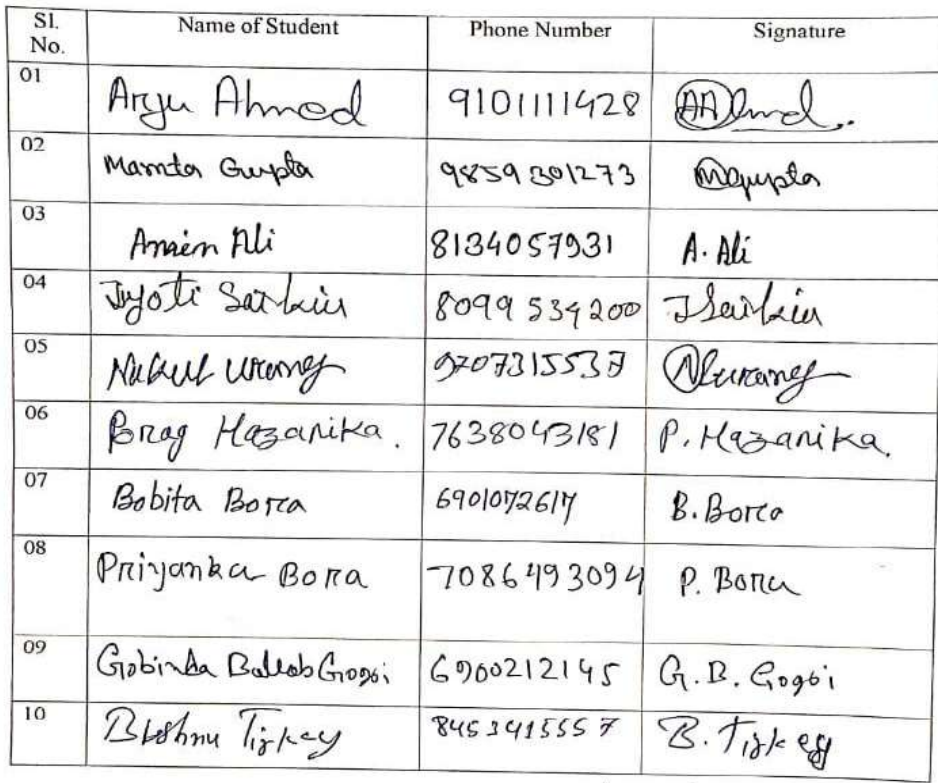 Sl. No. Name of Student Phone Number Signature
01 Arju Ahmed 9101111428 AAhmed
02 Mamta Gupta 9859301273 MGupta
03 Amin Ali 8134057931 A. Ali
04 Jyoti Saikia 8099534200 JSaikia
05 Nakul Urang 9707315537 NUrang
06 Prag Hazarika. 7638043181 P. Hazarika.
07 Bobita Bora 6901072617 B. Bora
08 Priyanka Bora 7086493094 P. Bora
09 Gobinda Ballab Gogoi 6900212145 G. B. Gogoi
10 Bishnu Tirkey 8453415557 B. Tirkey